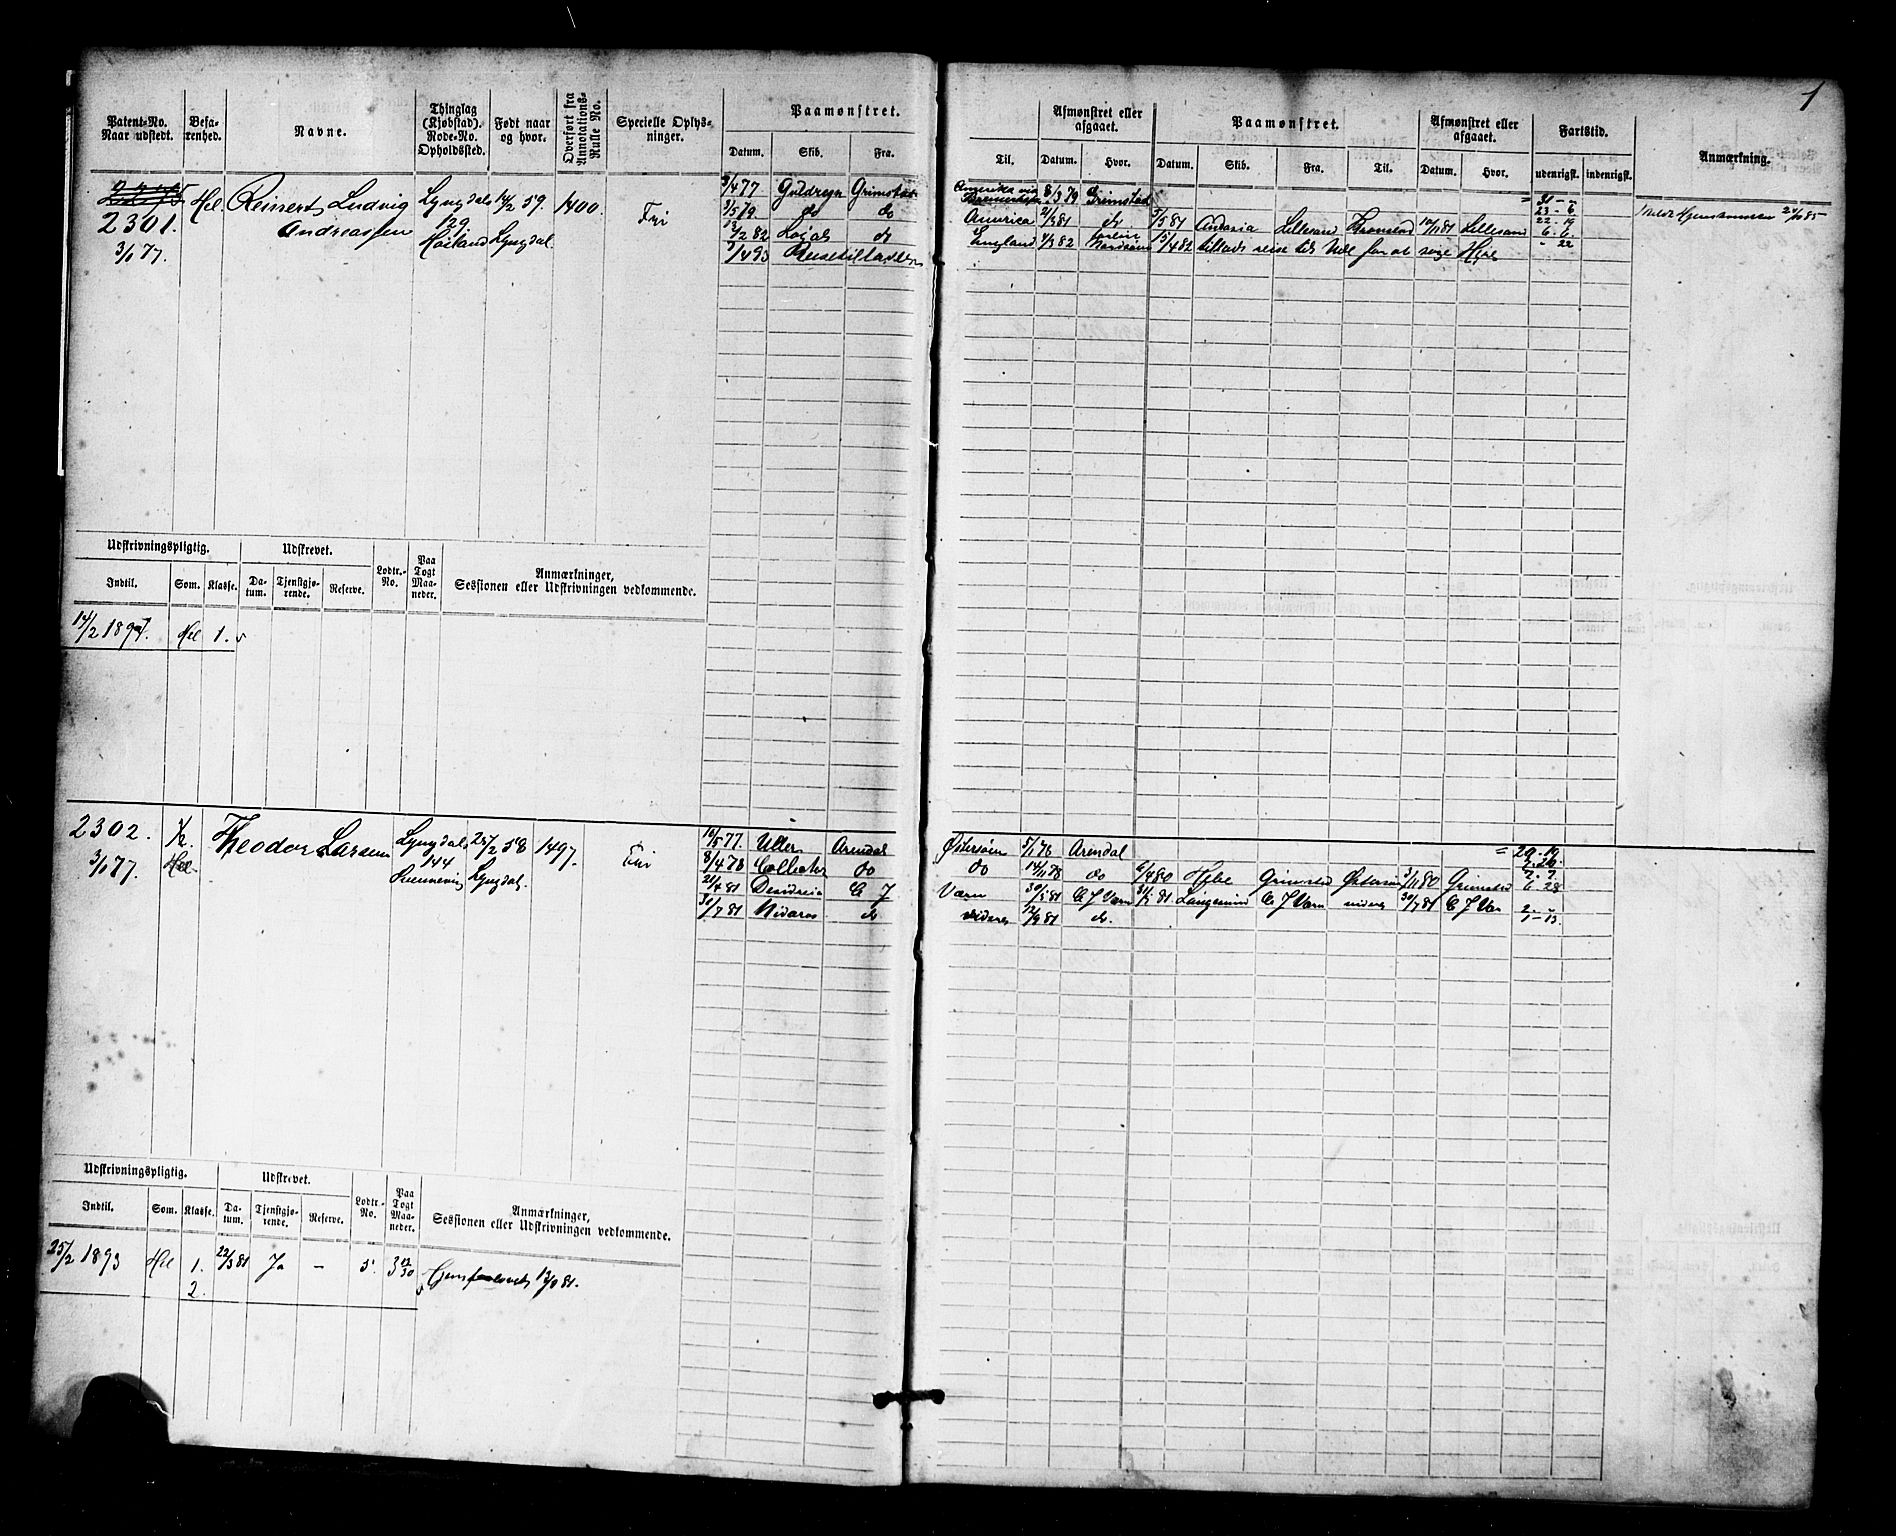 1
Patent-No. Naar udstedt.
Befarenhed.
Navne.
Thinglag (Kjøbstad). Rode-No. Opholdssted.
Født naar og hvor.
Overført fra Annotations-Rulle No.
Specielle Oplysninger.
Paamønstret.
Datum. Skib. Fra.
Til.
Afmønstret eller afgaaet.
Datum. Hvor.
Paamønstret.
Datum. Skib. Fra. Til.
Afmønstret eller afgaaet.
Datum. Hvor.
Fartstid.
udenrigsk. indenrigsk.
Anmærkning.
2301. Hel Reinert Ludvig Lyngdal 14/2 59. 1400. Fri
Andreassen 129
3/1 77. Høiland Lyngdal
9/4 77 Guldregn Grimstad Amerika via 8/3 79 Grimstad
3/5 79. do do America 2/3 81 do 5/5 81 Lillesand 14/11 81 Lillesand
13/2 82 Lojal do England 1/3 82 15/4 82 tillads reise til Udl for at søge Hyre
31 - -
23 - 6
22 - 19
6 - 6.
- 22
Udskrivningspligtig.
Indtil. Som. Klasse.
Udskrevet.
Datum. Tjenstgjørende. Reserve.
Lodtr.-No.
Paa Togt Maaneder.
Anmærkninger, Sessionen eller Udskrivningen vedkommende.
14/2 1897. Hel 1.
2302. 1/2. Theodor Larsen Lyngdal 25/2 58 1497. Fri
3/1 77. Hel. 144
Lyngdal.
10/5 77. Uller Arendal Østersøen 5/1 78 Arendal
8/4 78 do do 14/11 78 do 6/4 80 Hebe Grimstad Østersøen 3/11 80 Grimstad
21/4 81 Desideria C J Værn 30/5 81 C J Værn 31/5 81 C J Værn videre 30/7 81 C J Vær
30/7 81 Nidaros do videre 12/9 81 do.
= 20 - 19
7. 20.
7. 7
6 28
2 -
1 - 13.
Udskrivningspligtig.
Indtil. Som. Klasse.
Udskrevet.
Datum. Tjenstgjørende. Reserve.
Lodtr.-No.
Paa Togt Maaneder.
Anmærkninger, Sessionen eller Udskrivningen vedkommende.
25/2 1893 Hel 1. 22/3 81 Ja - 5. 3 12/30 13/9 81.
2.